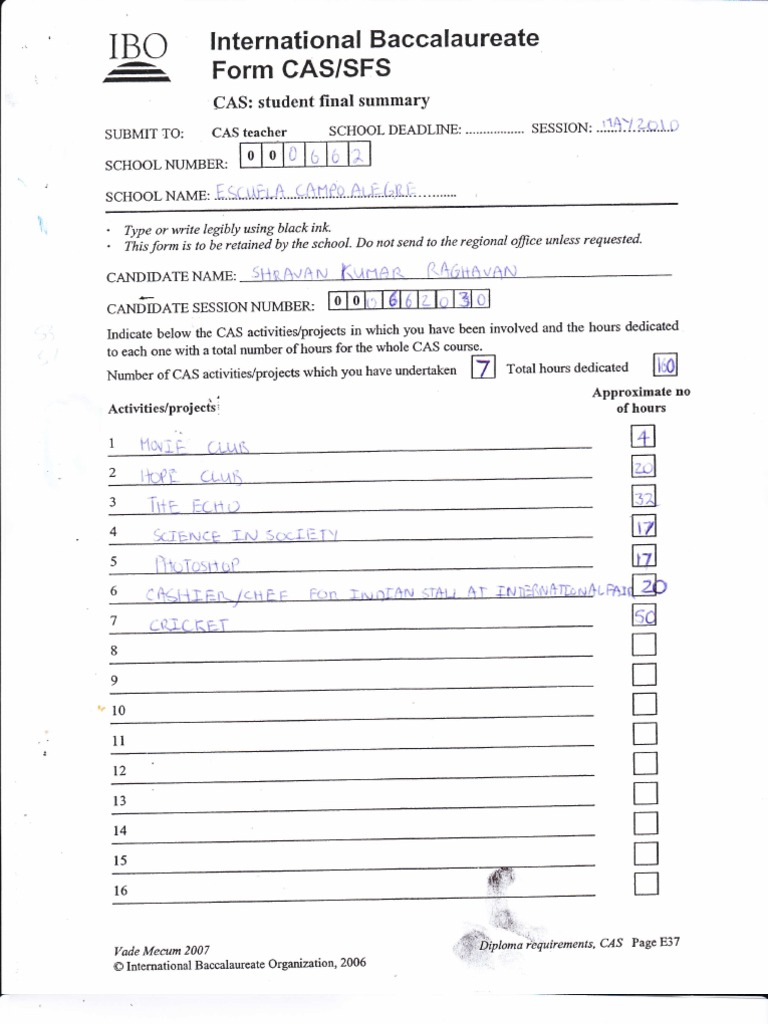 IBO
International Baccalaureate
Form CAS/SFS
CAS: student final summary
SUBMIT TO: CAS teacher SCHOOL DEADLINE: ................ SESSION: MAY 2010
SCHOOL NUMBER: 0 0 0 6 6 2
SCHOOL NAME: ESCUELA CAMPO ALEGRE
· Type or write legibly using black ink.
· This form is to be retained by the school. Do not send to the regional office unless requested.
CANDIDATE NAME: SHRAVAN KUMAR RAGHAVAN
CANDIDATE SESSION NUMBER: 0 0 0 6 6 2 0 3 0
Indicate below the CAS activities/projects in which you have been involved and the hours dedicated
to each one with a total number of hours for the whole CAS course.
Number of CAS activities/projects which you have undertaken 7 Total hours dedicated 160
Approximate no
Activities/projects: of hours
1 MOVIE CLUB 4
2 HOPE CLUB 20
3 THE ECHO 32
4 SCIENCE IN SOCIETY 17
5 PHOTOSHOP 17
6 CASHIER/CHEF FOR INDIAN STALL AT INTERNATIONAL FAIR 20
7 CRICKET 50
8
9
10
11
12
13
14
15
16
Vade Mecum 2007 Diploma requirements, CAS Page E37
© International Baccalaureate Organization, 2006